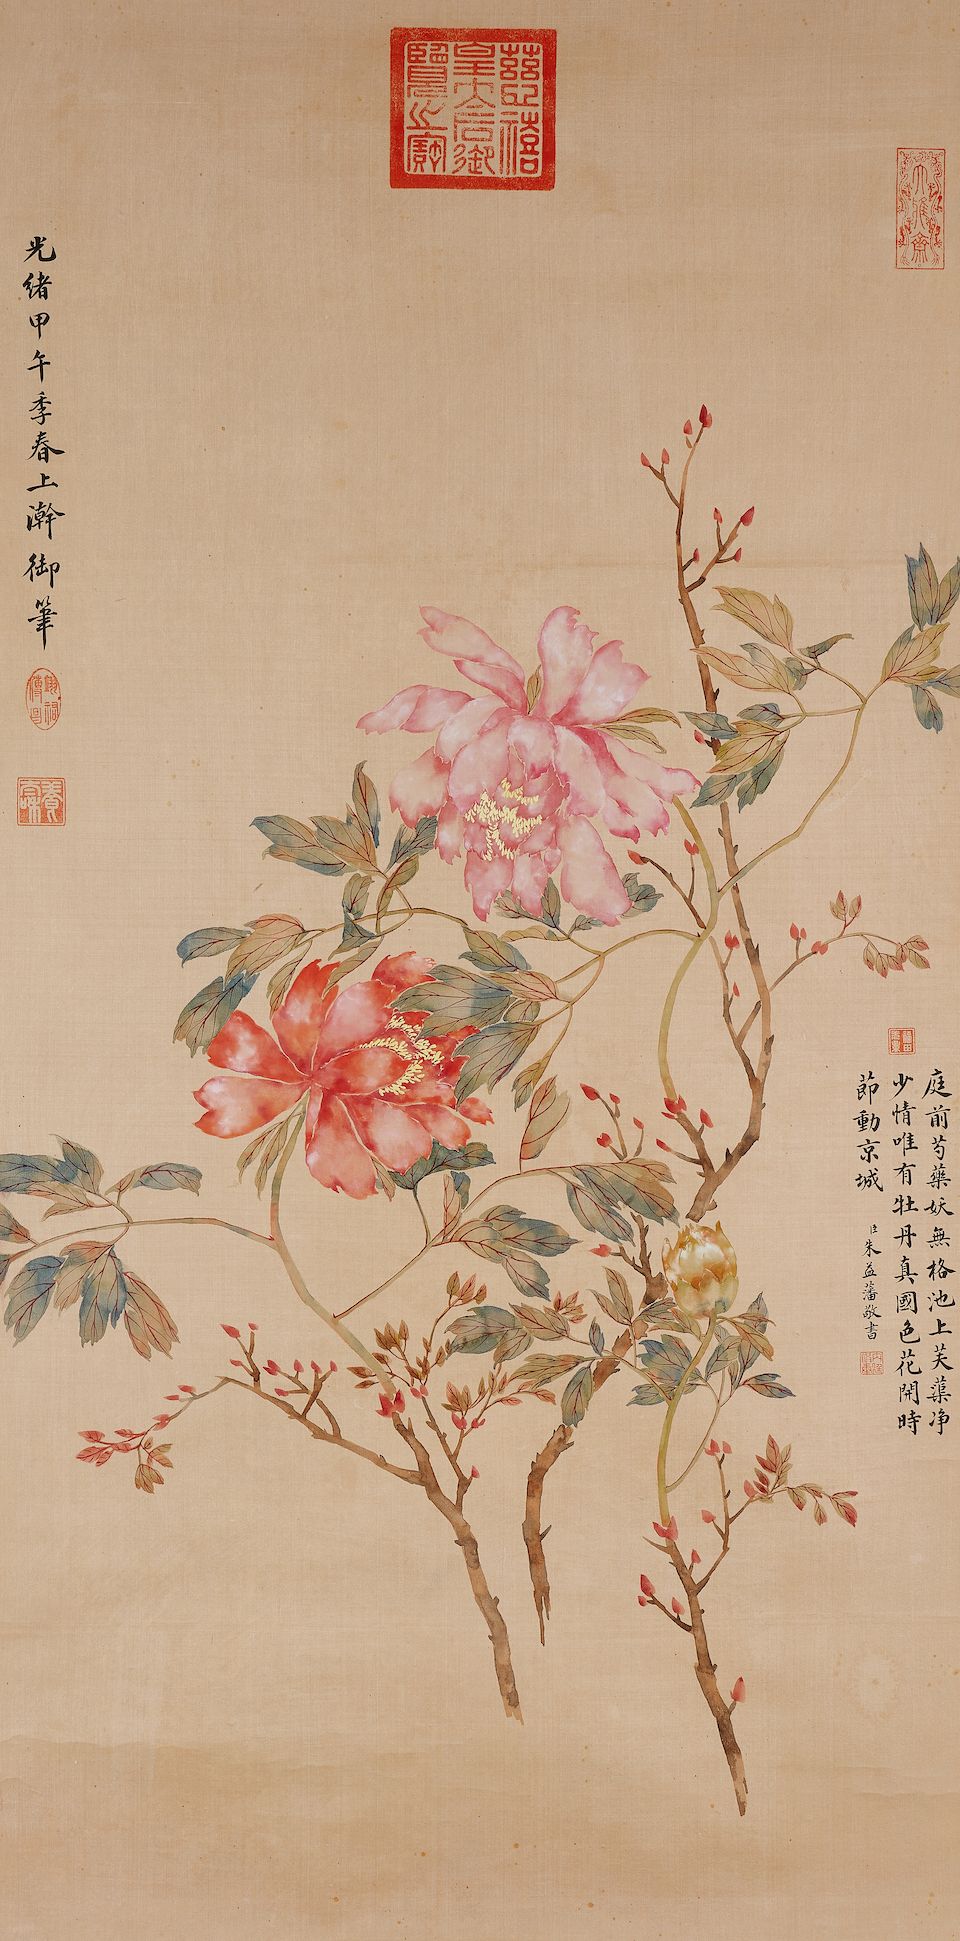 慈禧
皇太后御
覽之寶
大雅齋
庭前芍藥妖無格池上芙蕖净
少情唯有牡丹真國色花開時
節動京城
臣朱益藩敬書
光緒甲午季春上澣御筆